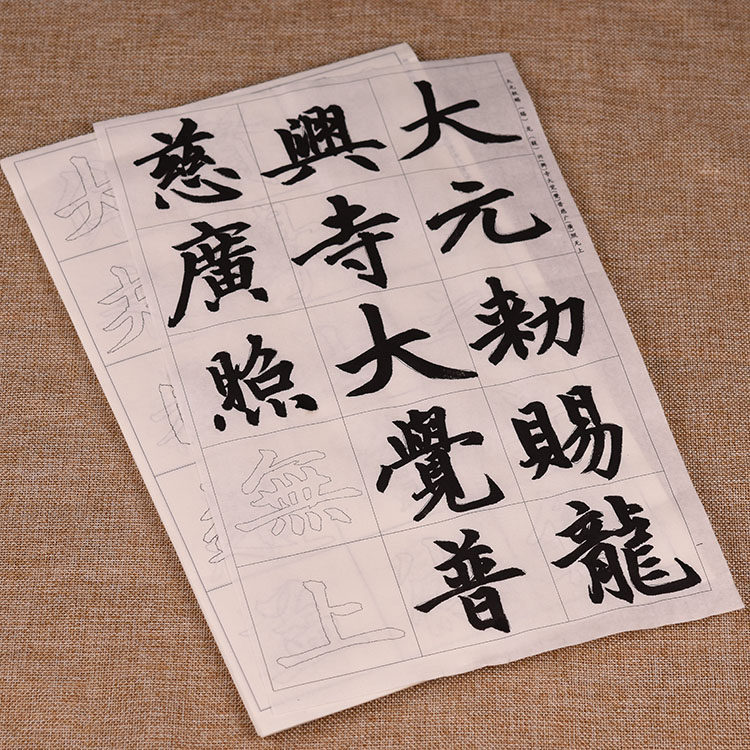 大元勅賜龍
興寺大覺普
慈廣照無上